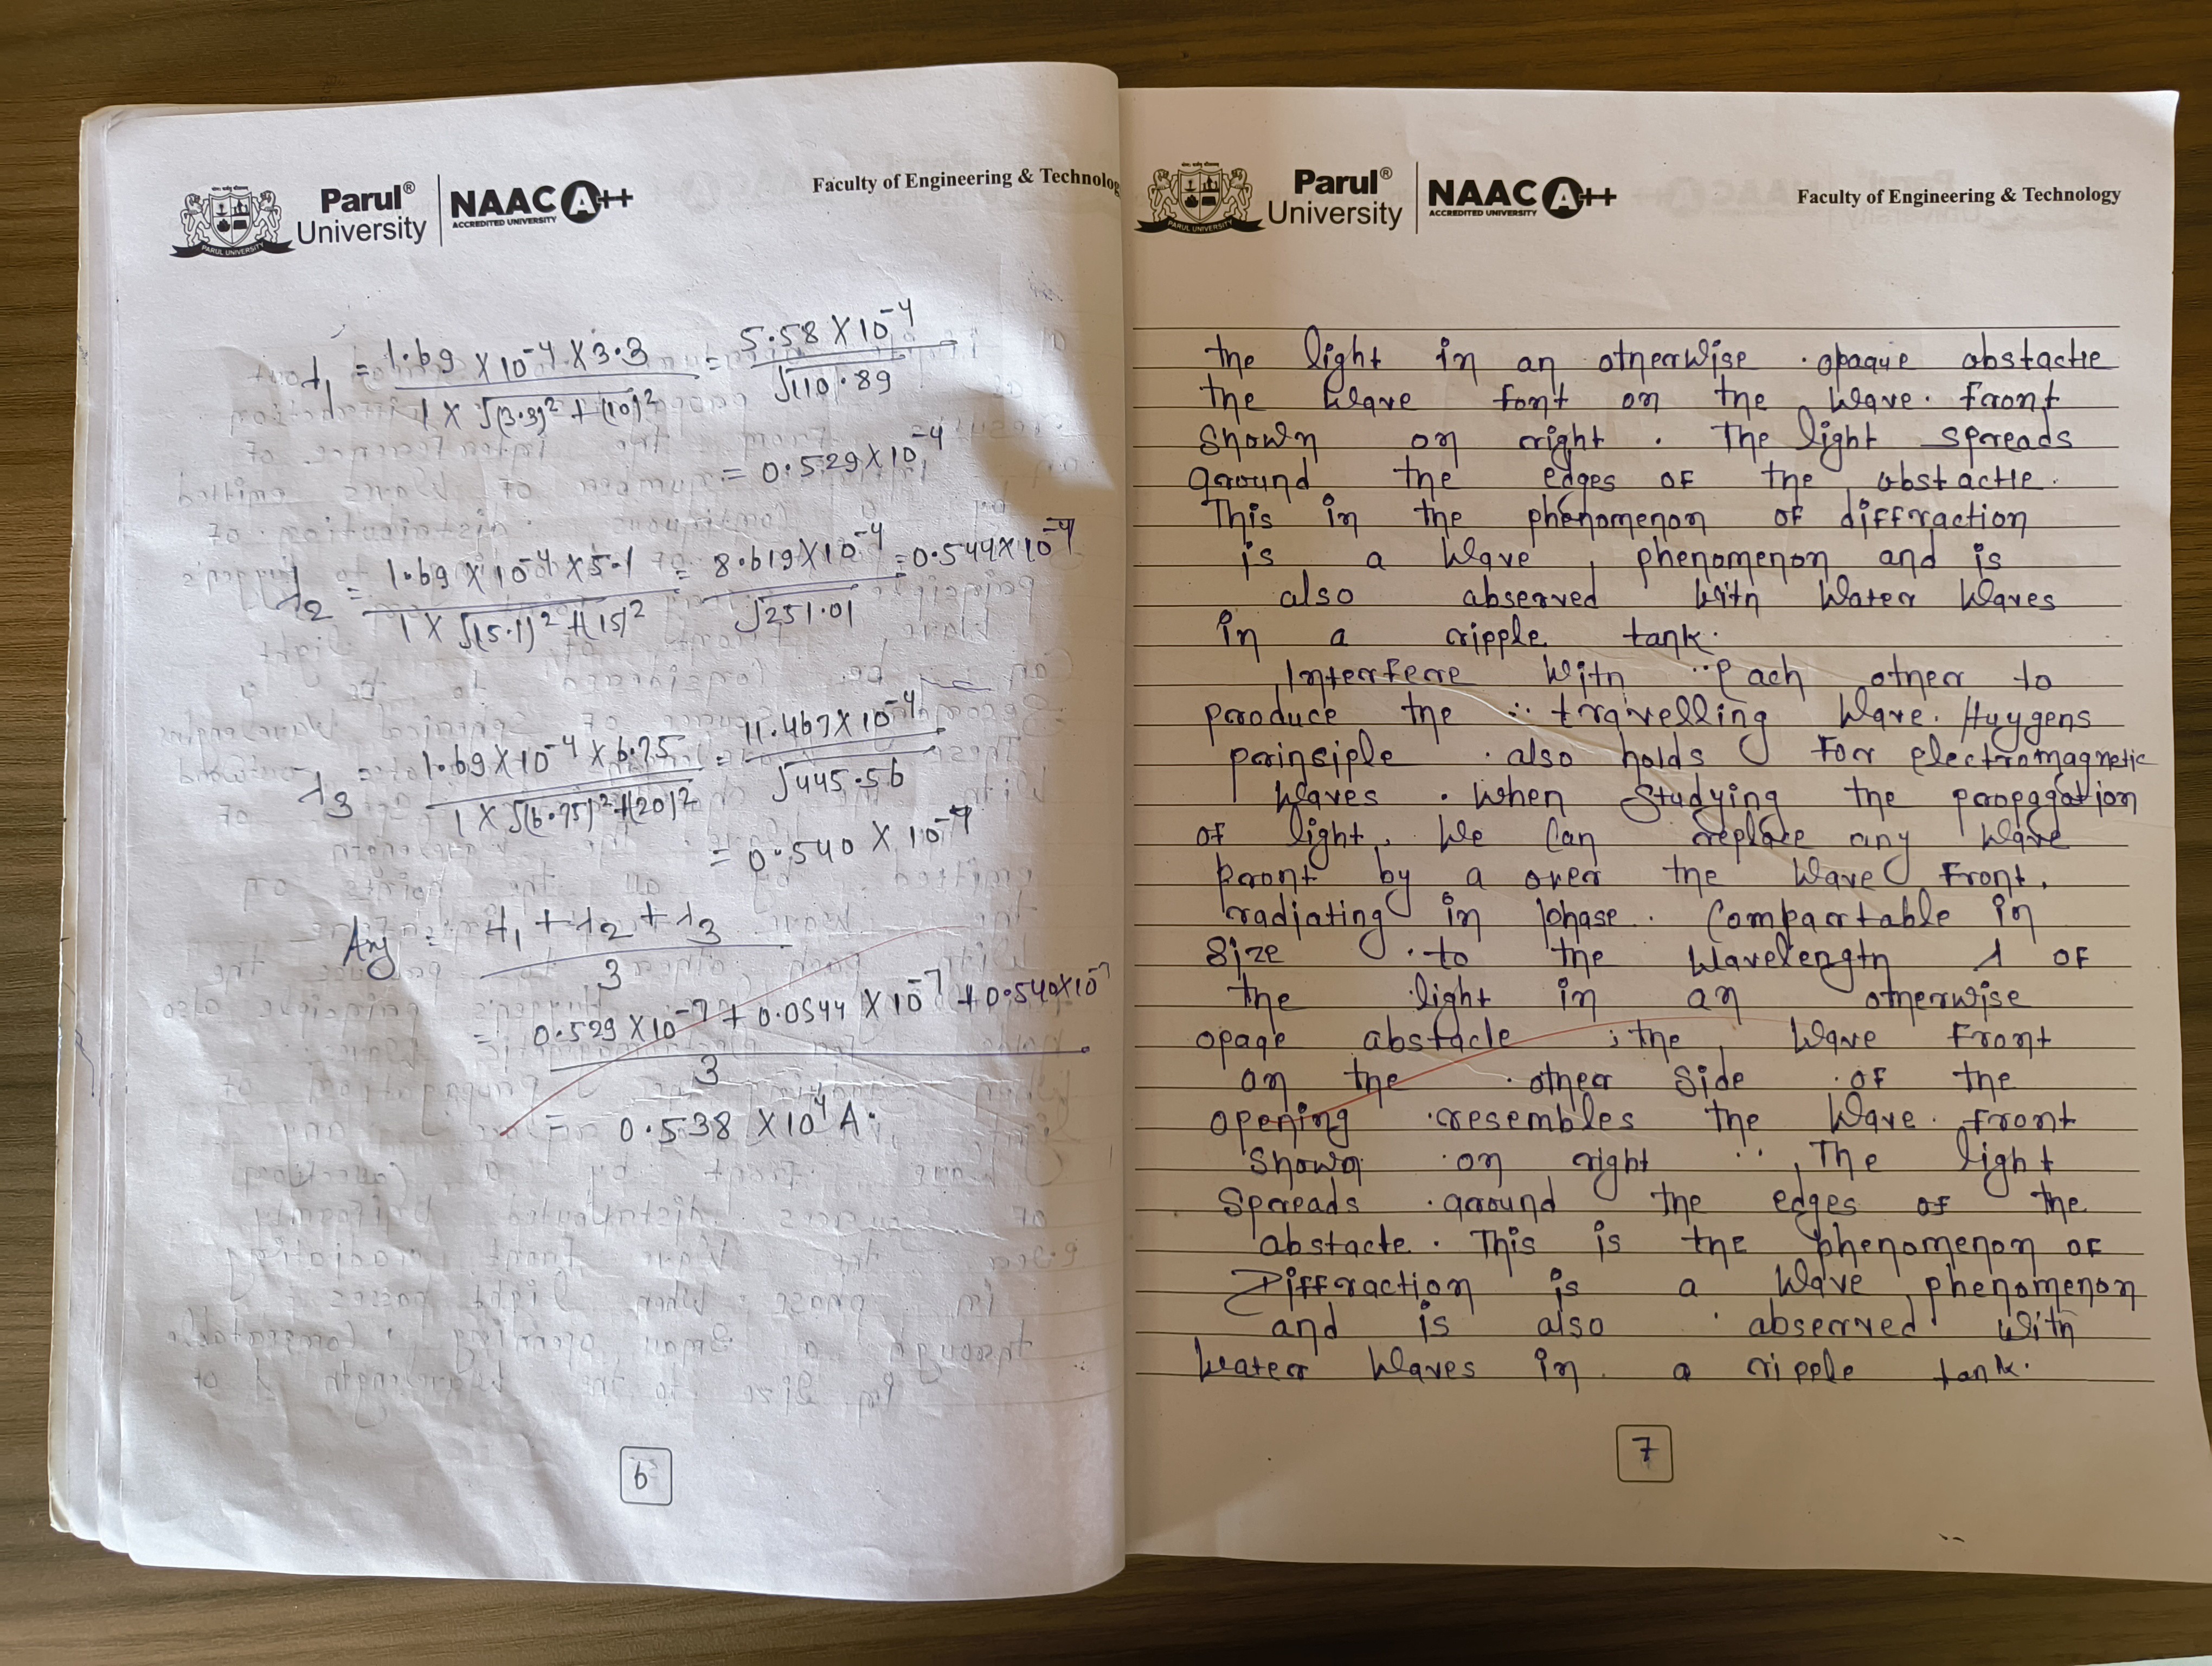 Parul®
University
NAAC A++
ACCREDITED UNIVERSITY
PARUL UNIVERSITY
Faculty of Engineering & Technolog
λ1 = 1.69 X 10^-4 X 3.3 / 1 X √(3.3)² + (10)² = 5.58 X 10^-4 / √110.89
= 0.529 X 10^-4
λ2 = 1.69 X 10^-4 X 5.1 / 1 X √(5.1)² + (15)² = 8.619 X 10^-4 / √251.01 = 0.544 X 10^-4
λ3 = 1.69 X 10^-4 X 6.75 / 1 X √(6.75)² + (20)² = 11.467 X 10^-4 / √445.56
= 0.540 X 10^-4
= λ1 + λ2 + λ3 / 3
= 0.529 X 10^-7 + 0.0544 X 10^-7 + 0.540 X 10^-7 / 3
= 0.538 X 10^4 A.
6
Parul®
University
NAAC A++
ACCREDITED UNIVERSITY
PARUL UNIVERSITY
Faculty of Engineering & Technology
the light in an otherwise opaque obstacle
the wave font on the wave. front
shown on right. The light spreads
around the edges of the obstacle.
This in the phenomenon of diffraction
is a wave, phenomenon and is
also observed with water waves
in a ripple tank.
Interfere with each other to
produce the travelling wave. Huygens
prinsiple also holds for electromagnetic
waves. When studying the propagation
of light, we can replace any wave
pront by a over the wave front,
radiating in phase. Compartable in
size to the wavelength λ of
the light in an otherwise
opaqe abstacle ; the, wave front
on the other side of the
opening resembles the wave. front
shown on right, The light
spreads around the edges of the
abstacte. This is the phenomenon of
Diffraction is a wave, phenomenon
and is also observed with
water waves in a ripple tank.
7